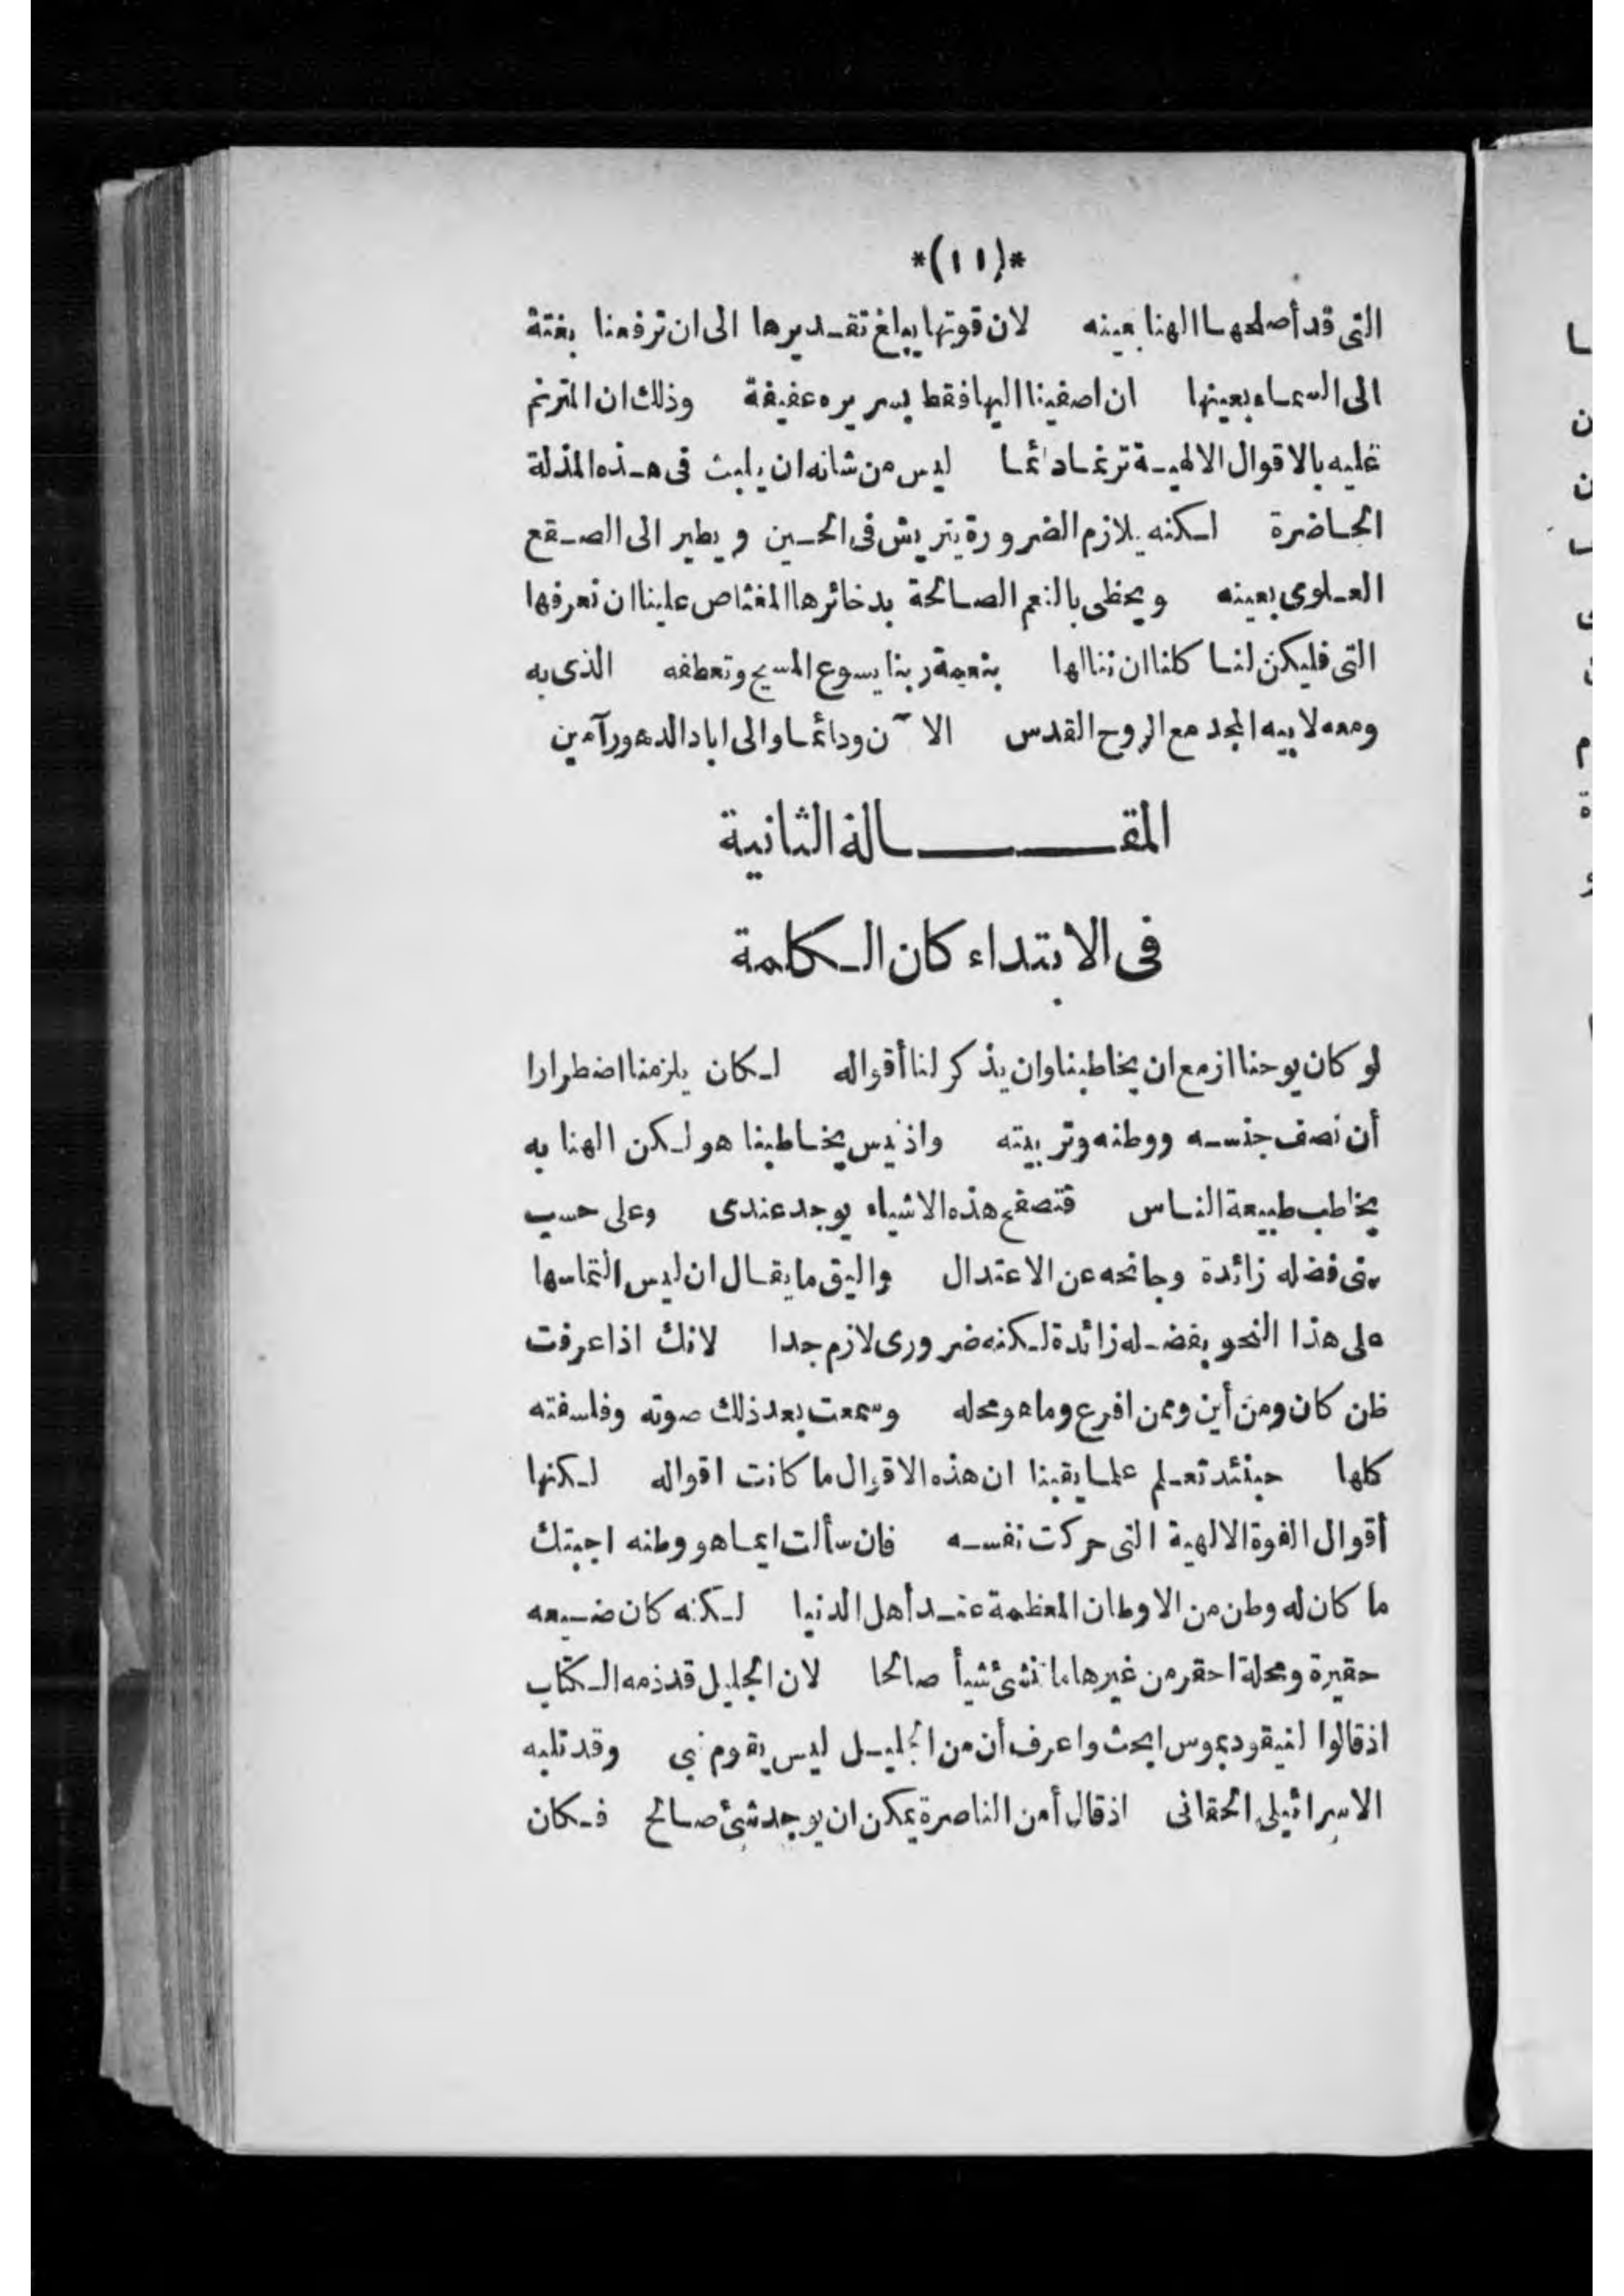 *(١١)*
التى قد أصلحها الهنا بعينه لان قوتها يبلغ تقديرها الى ان ترفعنا بغتة
الى السماء بعينها ان اصغينا اليها فقط بسريره عفيفة وذلك ان المترنم
عليه بالاقوال الالهية ترنما دائما ليس من شانه ان يلبث فى هذه المذلة
الحاضرة لكنه يلازم الضرورة يتريش فى الحين ويطير الى الصقع
العلوى بعينه ويحظى بالنعم الصالحة بدخائرها المغتاص علينا ان نعرفها
التى فليكن لنا كلنا ان ننالها بنعمة ربنا يسوع المسيح وتعطفه الذى به
ومعه لابيه المجد مع الروح القدس الآن ودائما والى اباد الدهور آمين
المقالة الثانية
فى الابتداء كان الكلمة
لو كان يوحنا ازمع ان يخاطبنا وان يذكر لنا أقواله لكان يلزمنا اضطرارا
أن نصف جنسه ووطنه وتربيته واذ ليس يخاطبنا هو لكن الهنا به
يخاطب طبيعة الناس فتصفح هذه الاشياء يوجد عندى وعلى حسب
فضله زائدة وجانحه عن الاعتدال واليق ما يقال ان ليس التماسها
على هذا النحو بفضله زائدة لكنه ضرورى لازم جدا لانك اذا عرفت
كان ومن أين وممن افرع وما هو محله وسمعت بعد ذلك صوته وفلسفته
كلها حينئذ تعلم علما يقينا ان هذه الاقوال ما كانت اقواله لكنها
أقوال القوة الالهية التى حركت نفسه فان سألت ايما هو وطنه اجبتك
ما كان له وطن من الاوطان المعظمة عند أهل الدنيا لكنه كان ضيعه
حقيرة ومحلة احقر من غيرها ما تنشئ شيأ صالحا لان الجليل قد ذمه الكتاب
اذ قالوا لنيقوديموس ابحث واعرف أن من الجليل ليس يقوم نبى وقد ثلبه
الاسرائيلى الحقانى اذ قال أمن الناصرة يمكن ان يوجد شئ صالح فكان